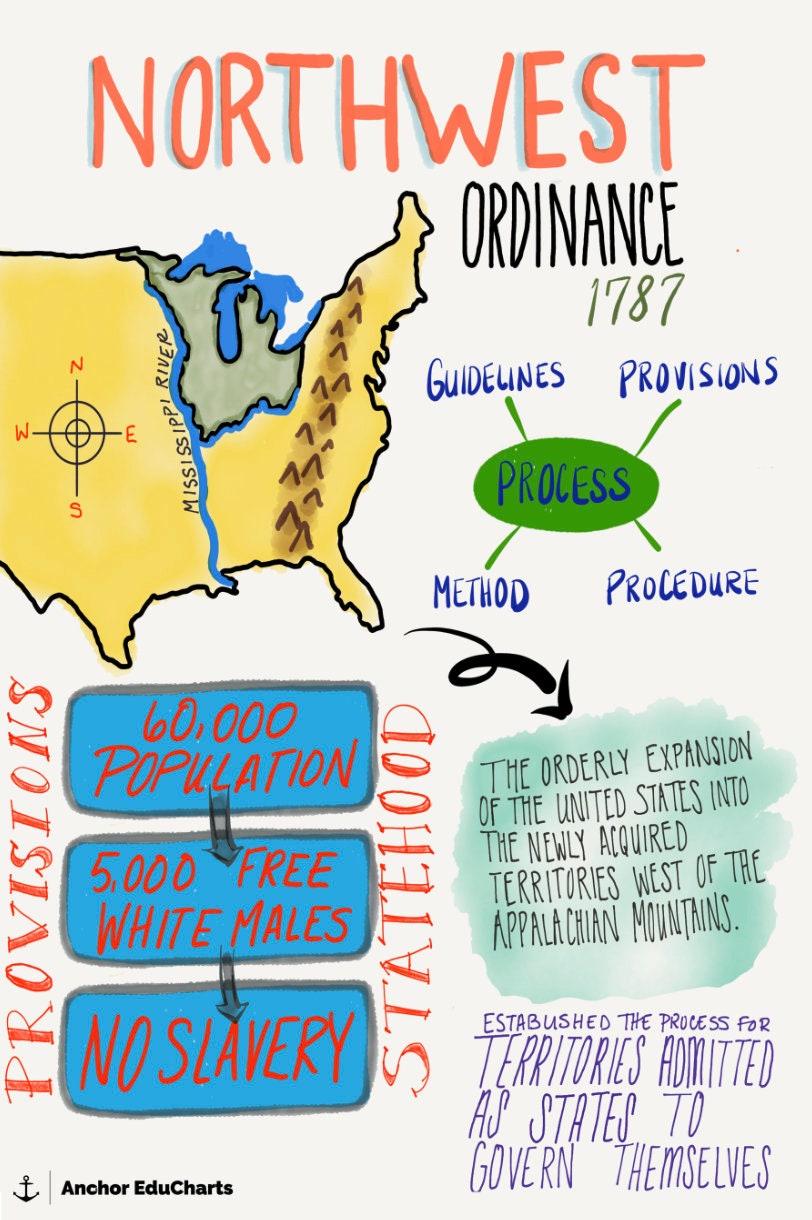 NORTHWEST
ORDINANCE
1787
N
W
E
S
MISSISSIPPI RIVER
GUIDELINES
PROVISIONS
PROCESS
METHOD
PROCEDURE
PROVISIONS
60,000
POPULATION
5,000 FREE
WHITE MALES
NO SLAVERY
STATEHOOD
THE ORDERLY EXPANSION
OF THE UNITED STATES INTO
THE NEWLY ACQUIRED
TERRITORIES WEST OF THE
APPALACHIAN MOUNTAINS.
ESTABLISHED THE PROCESS FOR
TERRITORIES ADMITTED
AS STATES TO
GOVERN THEMSELVES
Anchor EduCharts